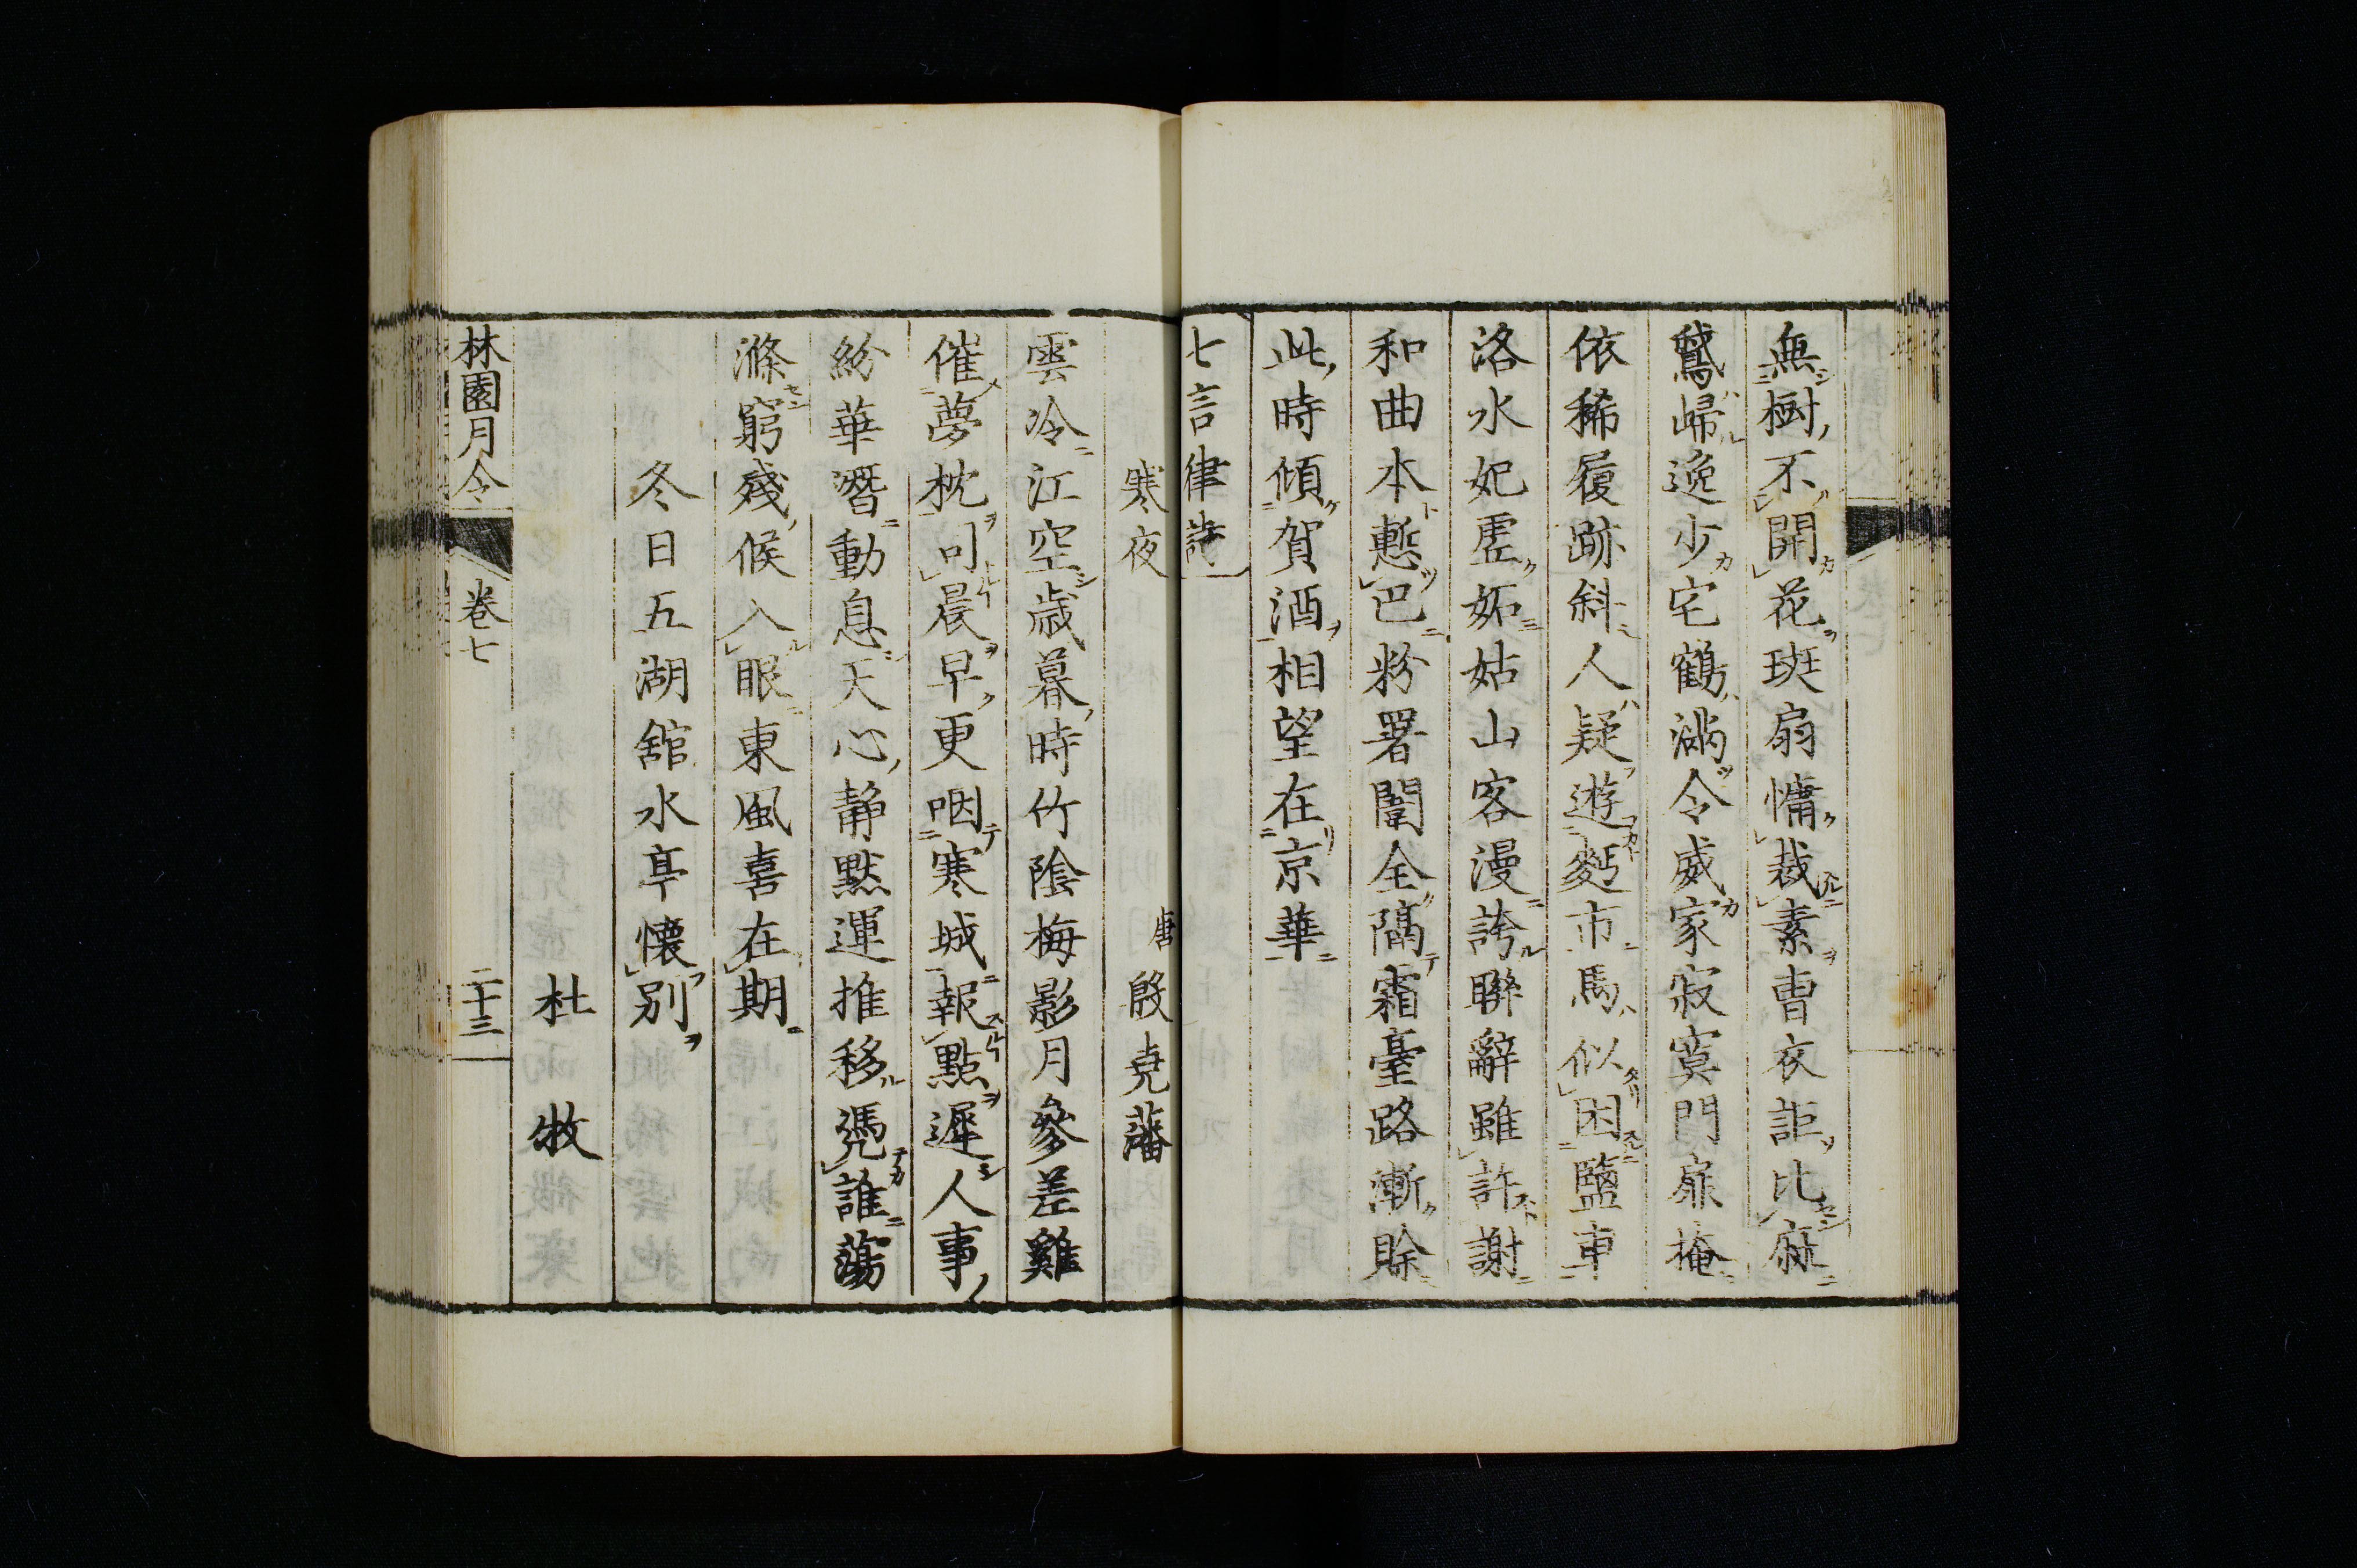 無樹不開花班扇慵裁素曹衣詎比麻
鵞歸逸少宅鶴滿令威家寂寞門扉掩
依稀履跡斜人疑遊麪市馬似困鹽車
洛水妃虛妬姑山客漫誇聯辭雖許謝
和曲本慙巴粉署闈全隔霜臺路漸賖
此時傾賀酒相望在京華
七言律詩
寒夜 唐 殷堯藩
雲冷江空歳暮時竹陰梅影月參差雞
催夢枕司晨早更咽寒城報點遲人事
紛華潛動息天心靜默運推移憑誰蕩
滌窮殘候入眼東風喜在期
冬日五湖舘水亭懷別
杜牧
林園月令 卷七 二十三